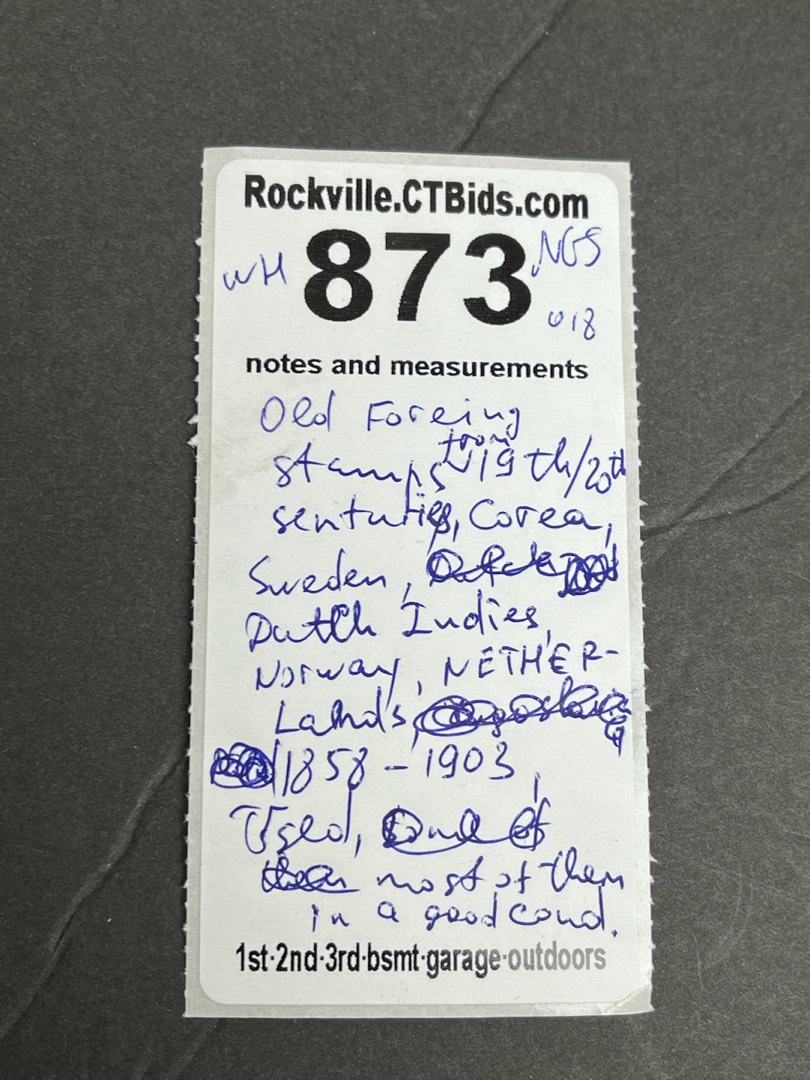 Rockville.CTBids.com
WH 873 NGS
018
notes and measurements
Old Foreing
stamps from 19th/20th
senturies, Corea,
Sweden,
Dutch Indies,
Norway, NETHER-
Lands,
1858-1903,
Used,
most of them
in a good cond.
1st·2nd·3rd·bsmt·garage·outdoors